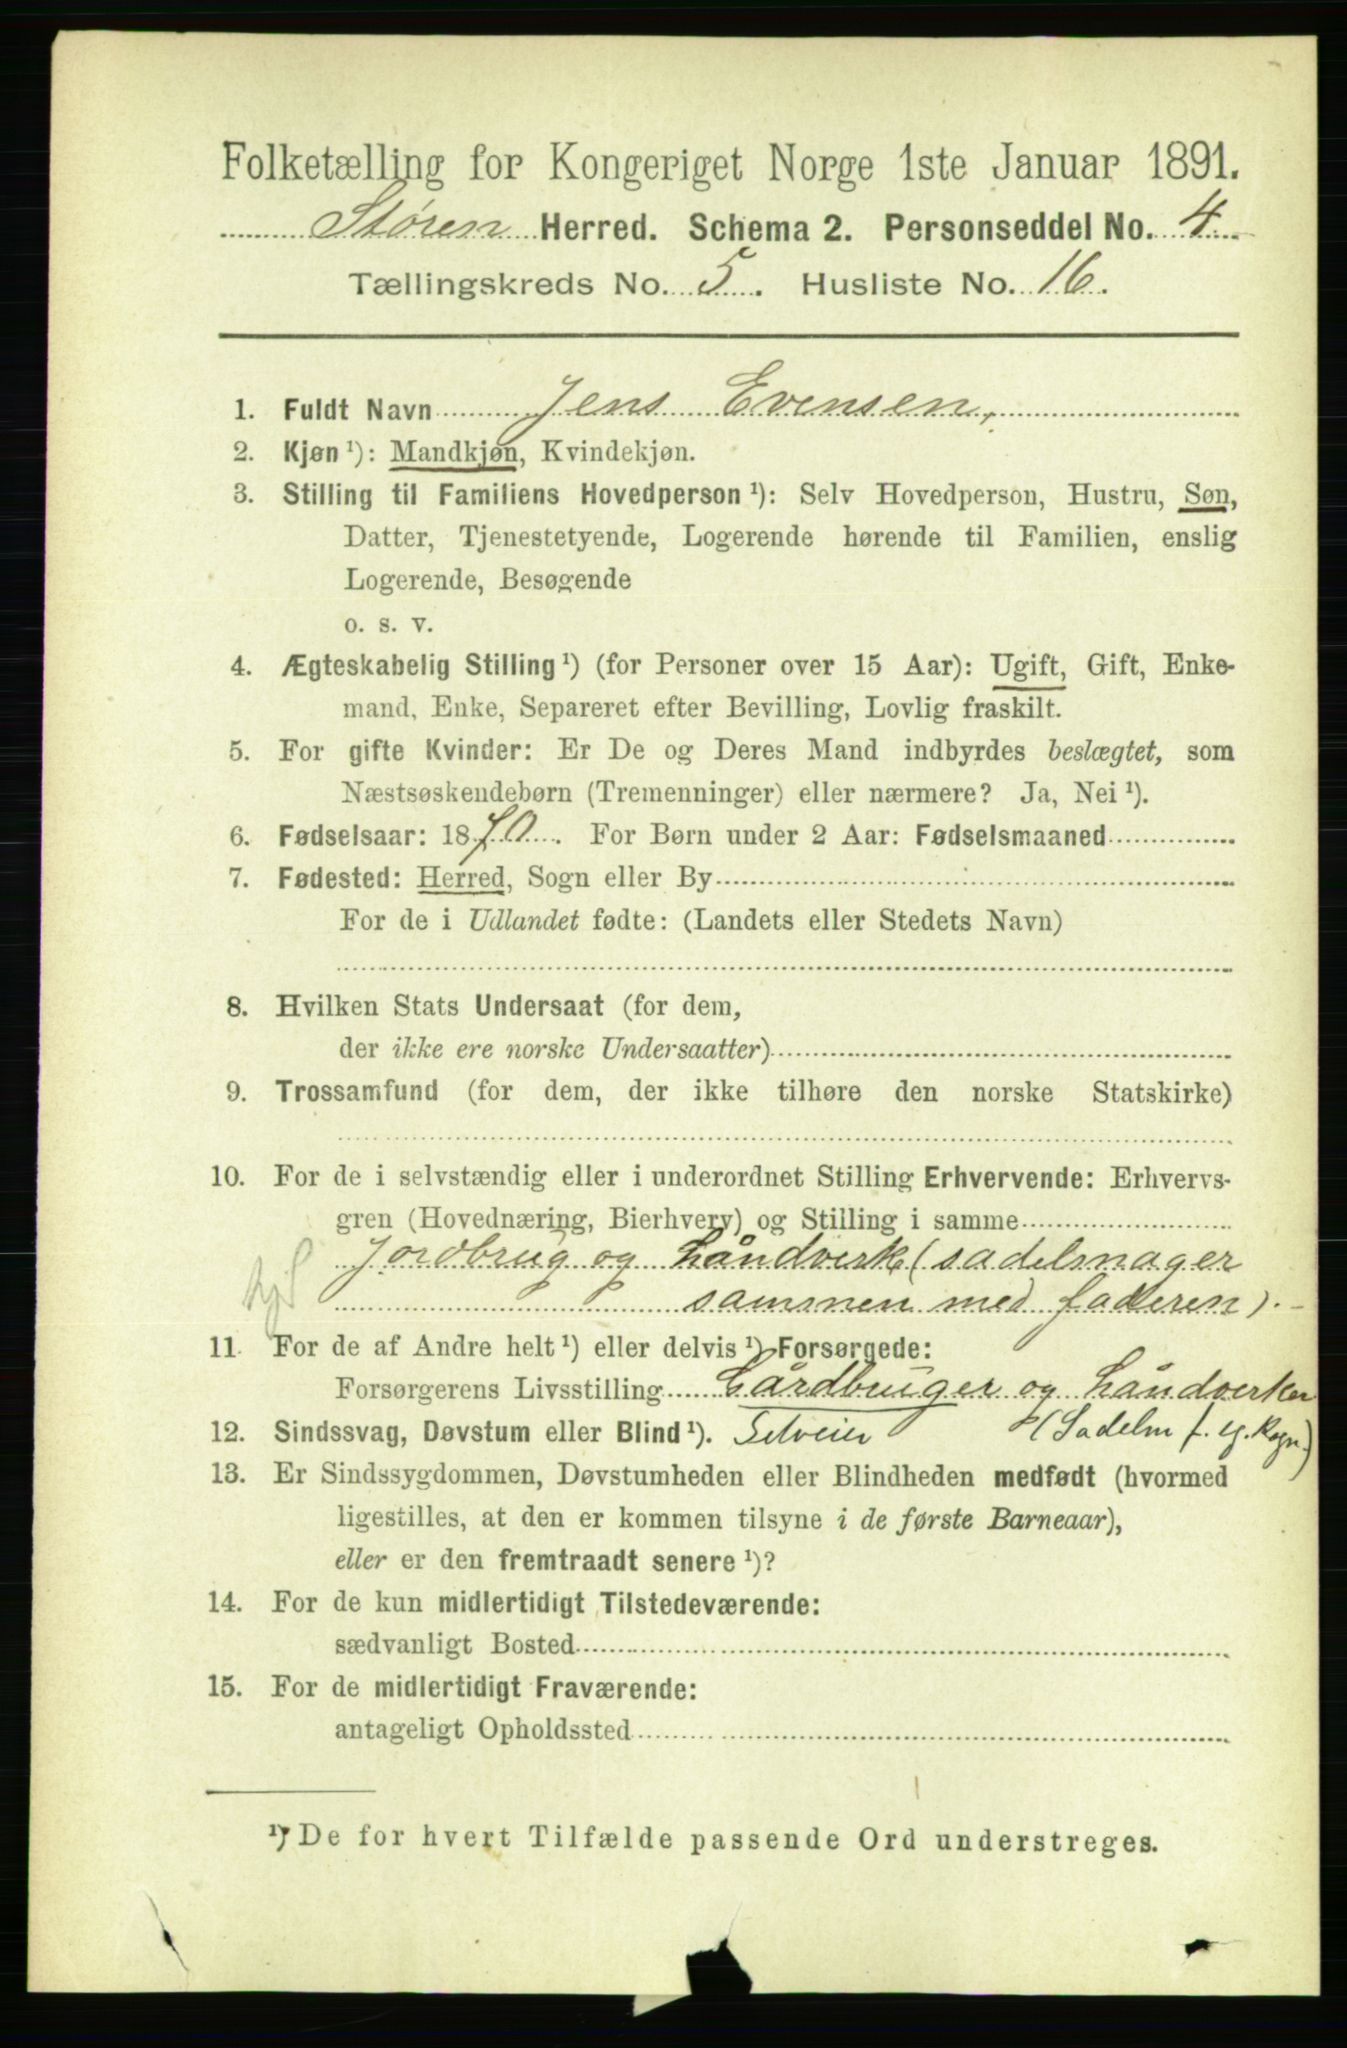 Folketælling for Kongeriget Norge 1ste Januar 1891.
Støren Herred. Schema 2. Personseddel No. 4
Tællingskreds No. 5. Husliste No. 16.
1. Fuldt Navn Jens Evensen,
2. Kjøn ¹): Mandkjøn, Kvindekjøn.
3. Stilling til Familiens Hovedperson ¹): Selv Hovedperson, Hustru, Søn,
Datter, Tjenestetyende, Logerende hørende til Familien, enslig
Logerende, Besøgende
o. s. v.
4. Ægteskabelig Stilling ¹) (for Personer over 15 Aar): Ugift, Gift, Enke-
mand, Enke, Separeret efter Bevilling, Lovlig fraskilt.
5. For gifte Kvinder: Er De og Deres Mand indbyrdes beslægtet, som
Næstsøskendebørn (Tremenninger) eller nærmere? Ja, Nei ¹).
6. Fødselsaar: 1870. For Børn under 2 Aar: Fødselsmaaned
7. Fødested: Herred, Sogn eller By
For de i Udlandet fødte: (Landets eller Stedets Navn)
8. Hvilken Stats Undersaat (for dem,
der ikke ere norske Undersaatter)
9. Trossamfund (for dem, der ikke tilhøre den norske Statskirke)
10. For de i selvstændig eller i underordnet Stilling Erhvervende: Erhvervs-
gren (Hovednæring, Bierhverv) og Stilling i samme
Jordbrug og håndverk (sadelmager
sammen med faderen). -
11. For de af Andre helt ¹) eller delvis ¹) Forsørgede:
Forsørgerens Livsstilling Gårdbruger og håndverker
12. Sindssvag, Døvstum eller Blind ¹). Selveier (Sadelm f. eg. Regn.)
13. Er Sindssygdommen, Døvstumheden eller Blindheden medfødt (hvormed
ligestilles, at den er kommen tilsyne i de første Barneaar),
eller er den fremtraadt senere ¹)?
14. For de kun midlertidigt Tilstedeværende:
sædvanligt Bosted
15. For de midlertidigt Fraværende:
antageligt Opholdssted
¹) De for hvert Tilfælde passende Ord understreges.